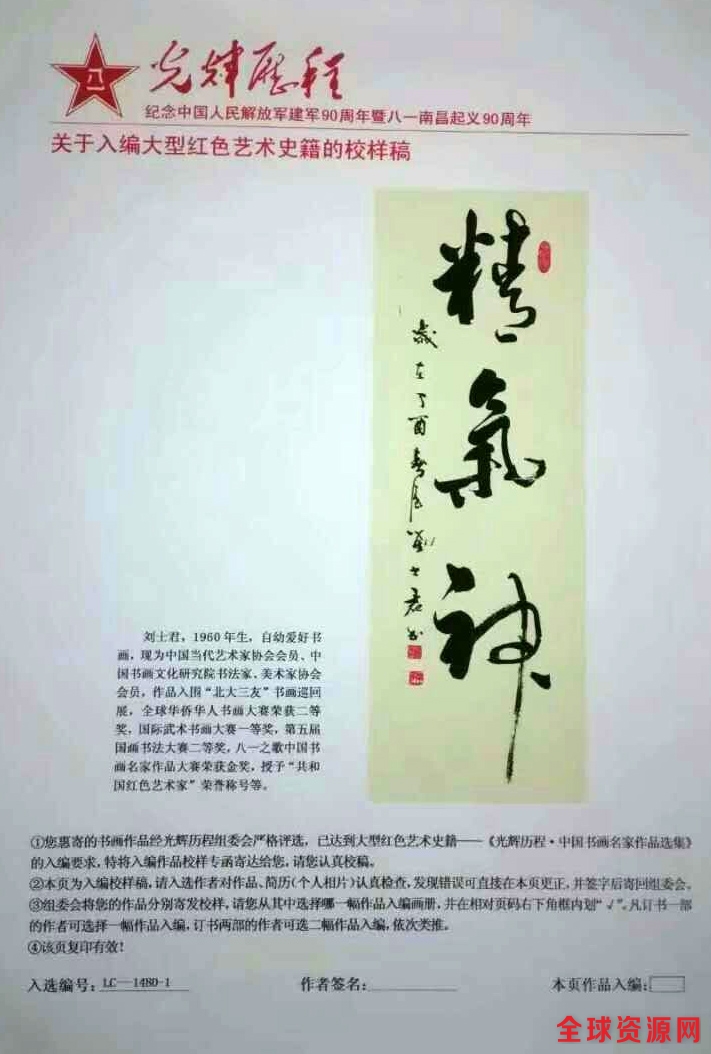 八一
光辉历程
纪念中国人民解放军建军90周年暨八一南昌起义90周年
关于入编大型红色艺术史籍的校样稿
精氣神
歲在丁酉春月劉士君書
刘士君，1960年生，自幼爱好书
画，现为中国当代艺术家协会会员、中
国书画文化研究院书法家、美术家协会
会员，作品入围“北大三友”书画巡回
展，全球华侨华人书画大赛荣获二等
奖，国际武术书画大赛一等奖，第五届
国画书法大赛二等奖，八一之歌中国书
画名家作品大赛荣获金奖，授予“共和
国红色艺术家”荣誉称号等。
①您惠寄的书画作品经光辉历程组委会严格评选，已达到大型红色艺术史籍——《光辉历程·中国书画名家作品选集》
的入编要求，特将入编作品校样专函寄达给您，请您认真校稿。
②本页为入编校样稿，请入选作者对作品、简历(个人相片)认真检查，发现错误可直接在本页更正，并签字后寄回组委会。
③组委会将您的作品分别寄发校样，请您从其中选择哪一幅作品入编画册，并在相对页码右下角框内划“√”。凡订书一部
的作者可选择一幅作品入编，订书两部的作者可选二幅作品入编，依次类推。
④该页复印有效！
入选编号：LC—1480-1 作者签名： 本页作品入编：
全球资源网